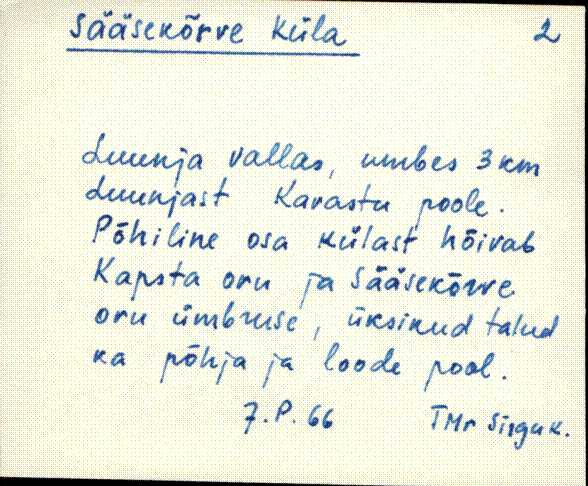 Sääsekõrve Küla 2
Luunja vallas, umbes 3 km
Luunjast Kavastu poole.
Põhiline osa külast hõivab
Kapsta oru ja Sääsekõrve
oru ümbruse, üksikud talud
ka põhja ja loode pool.
7. P. 66 TMr Sirguk.